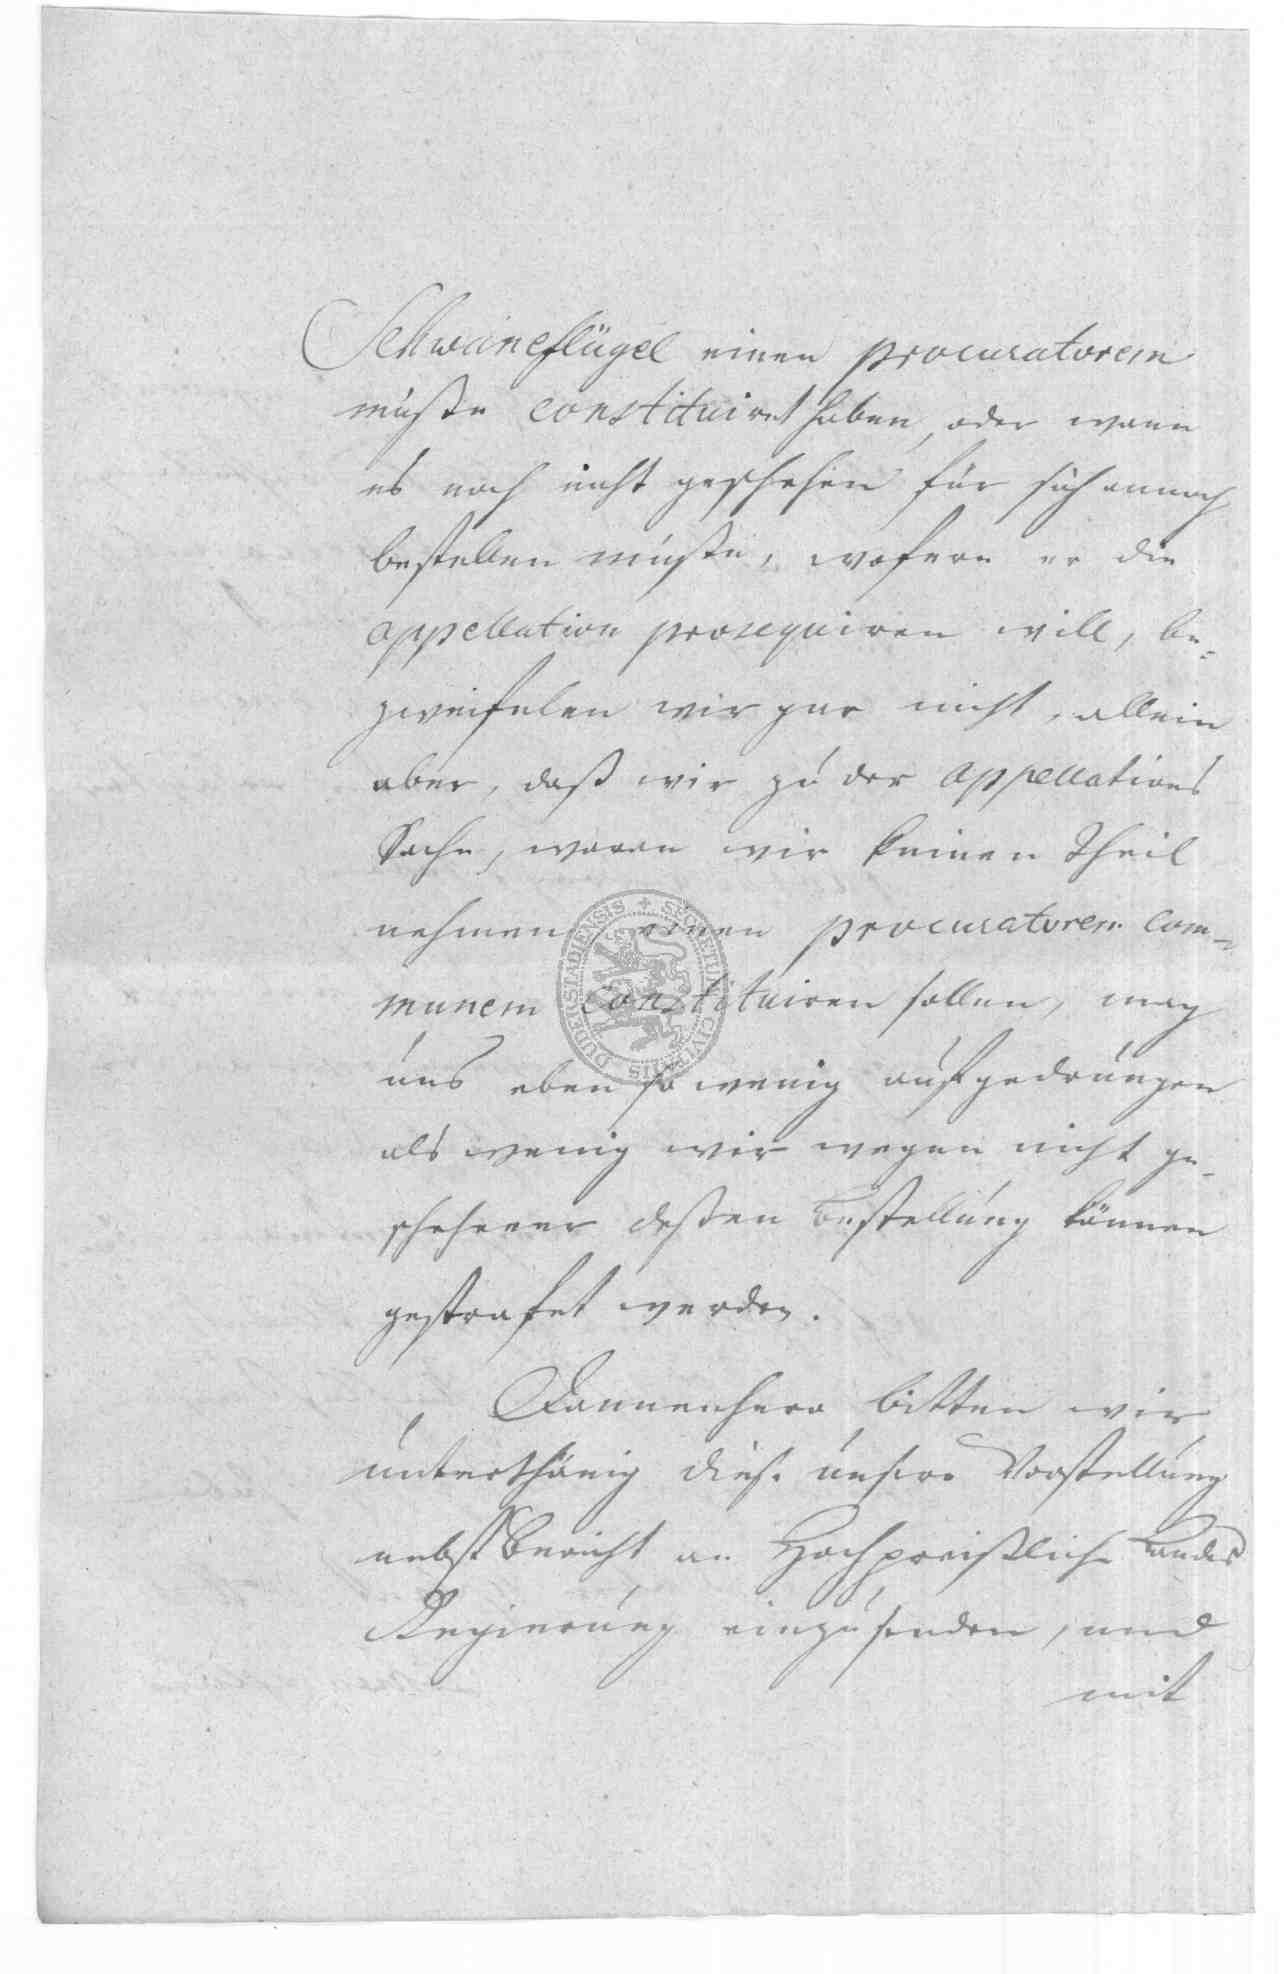 Schwaineflügel einen procuratorem
müste constituiret haben, oder wann
es noch nicht geschehen für sich annoch
bestellen müste, wofern er die
appellation prosequiren will, be-
zweifelen wir gar nicht, allein
aber, daß wir zu der appellations
Sache, woran wir keinen Theil
nehmen einen procuratorem com-
munem constituiren sollen, mag
uns eben so wenig aufgedrungen
als wenig wir wegen nicht ge-
schehener deßen Bestellung können
gestrafet werden.
Dannenhero bitten wir
unterthänig diese unsere Vorstellung
nebst Bericht an Hochpreißliche Landes
Regierung einzusenden, und
mit
SECRETUM CIVITATIS DUDERSTADIENSIS